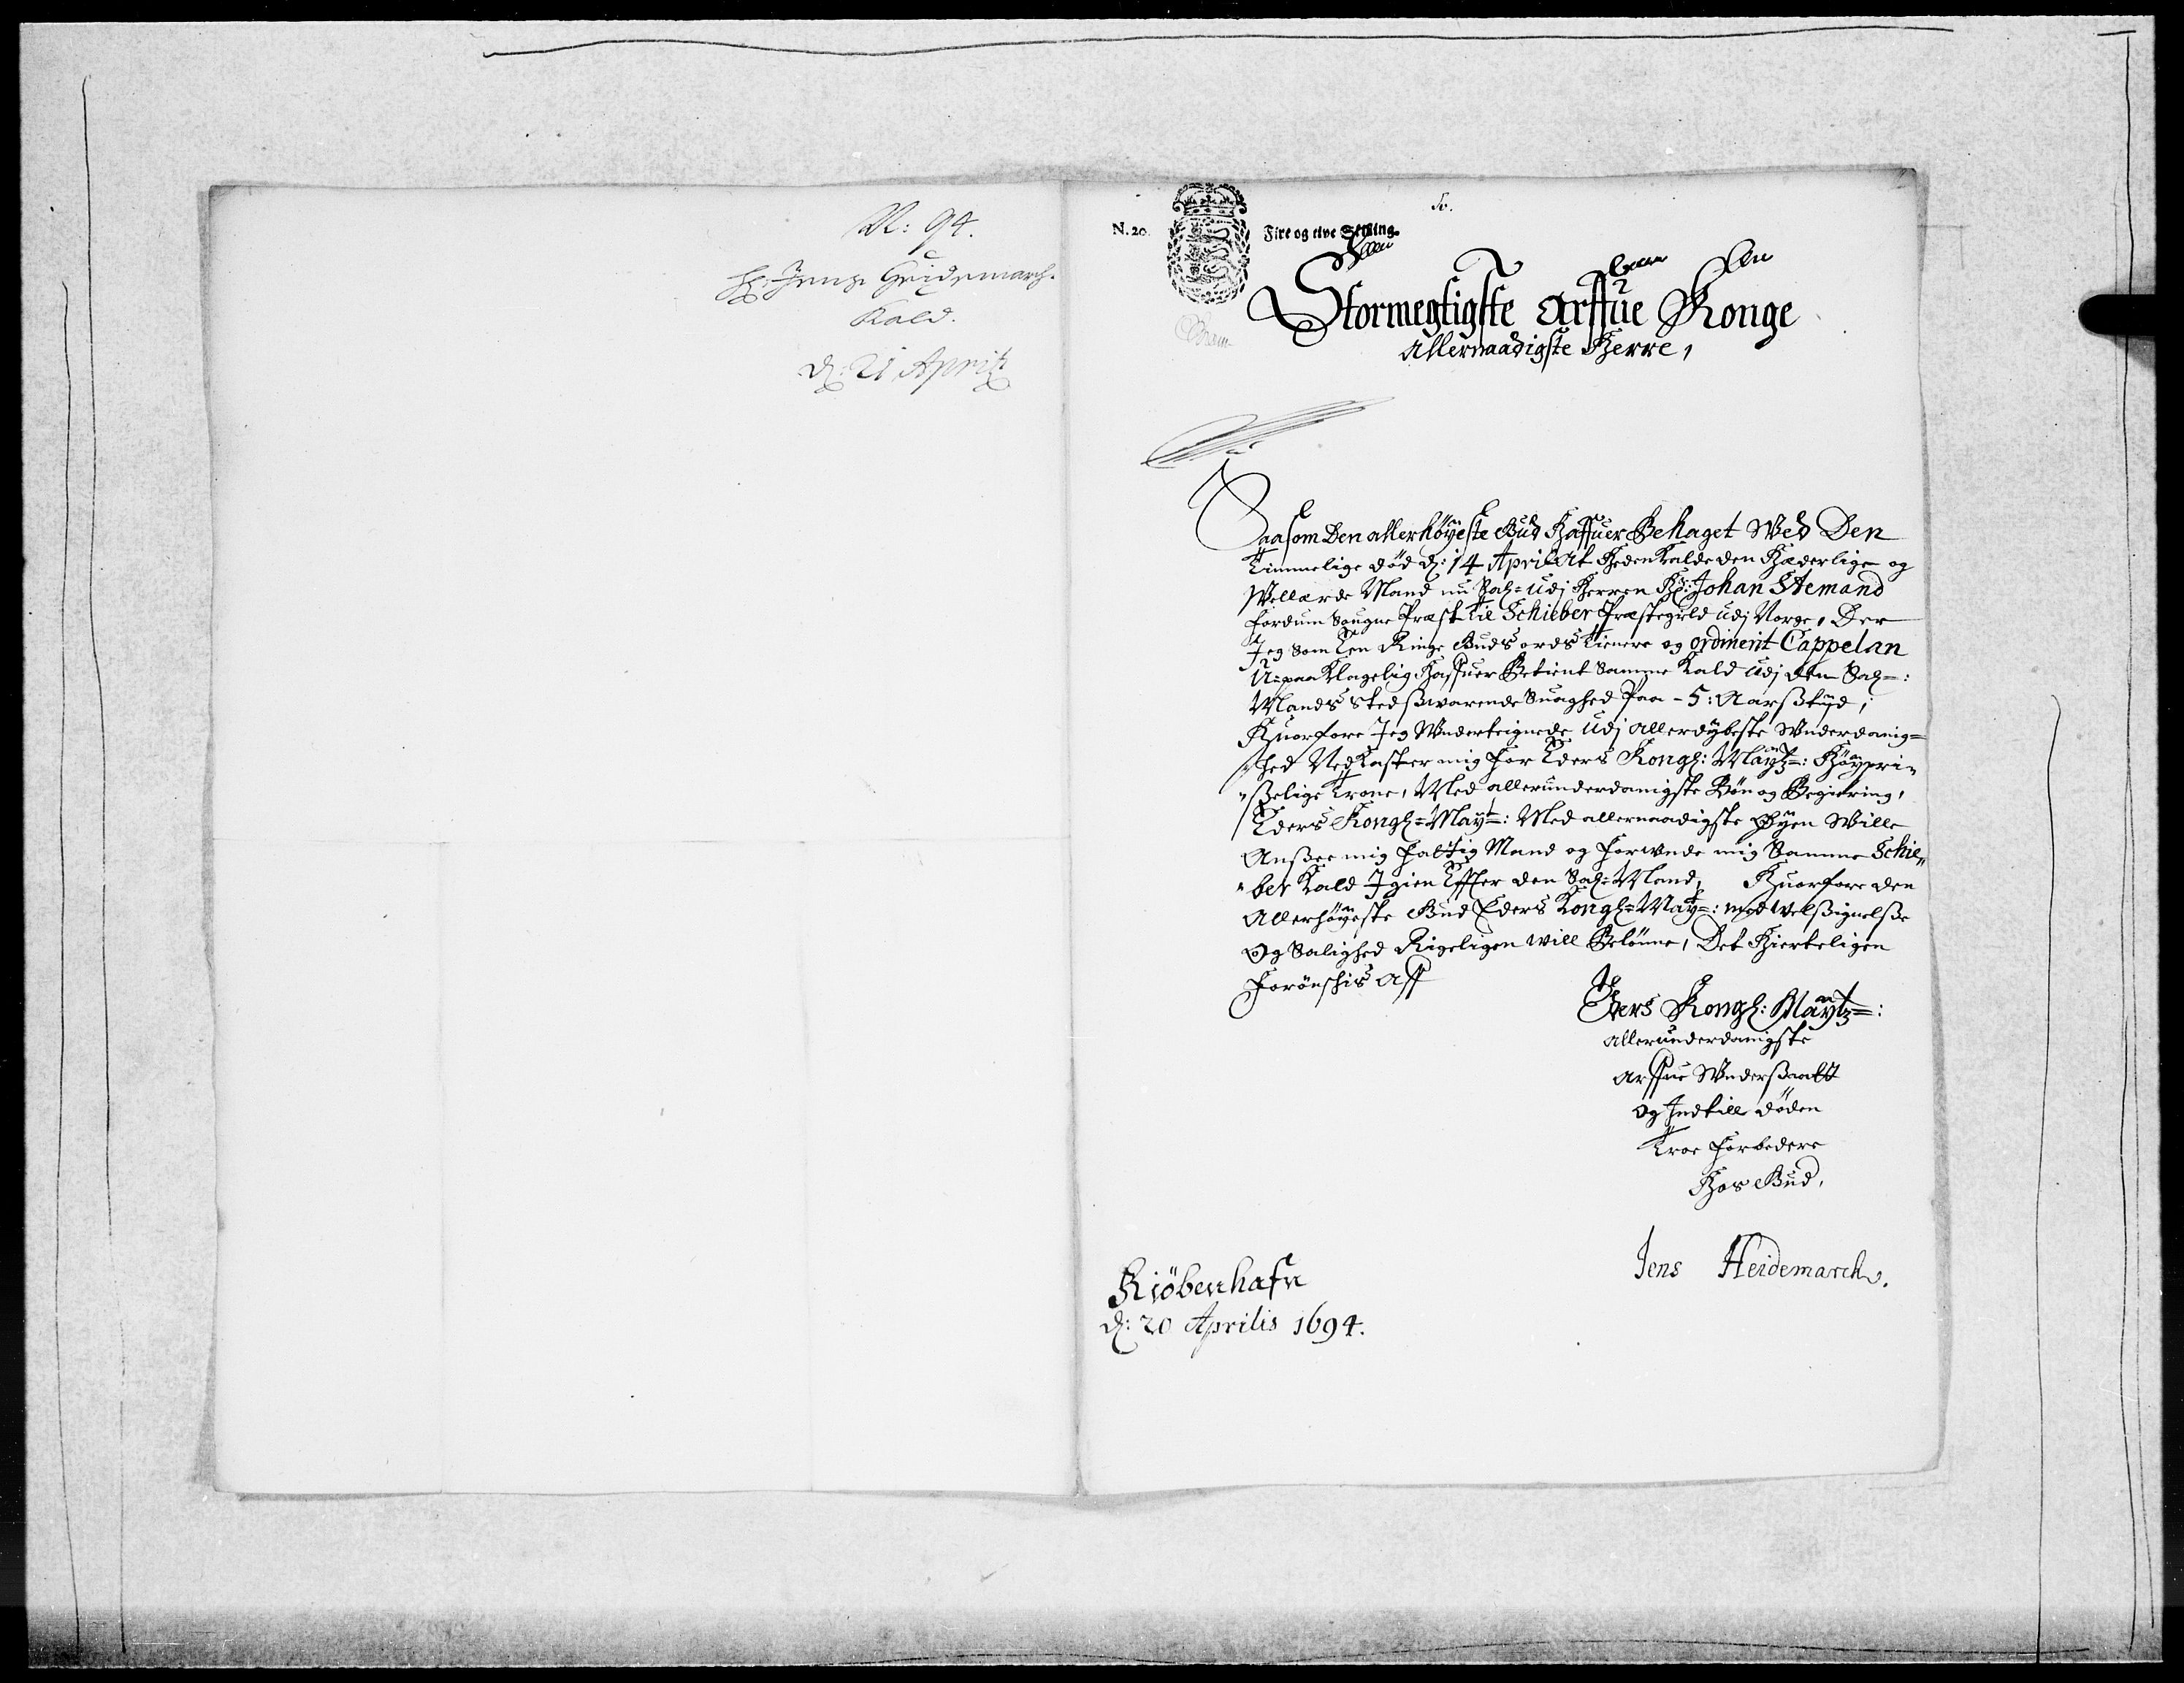 N: 94.
Hr: Jens Heidemarch.
Kald.
d: 21 April:
N. 20.
Fire og tive Skilling
Stormegtigste Arffue Konge
Allernaadigste Herre,
Saasom Den allerhöyeste Gud Haffuer Behaget Wed Den
Timmelige död d: 14 April At Hedenkalde den Hæderlige og
Wellærde Mand nu Sal= Udj Herren Hr: Johan Stemand
fordum Sougne Præst til Schieber Præstegield Udj Norge, Der
Jeg Som Een Ringe Guds ords Tienere og ordinerit Cappelan
U=paaklagelig Haffuer Betient Samme Kald Udj den Sal=:
Mands Stedsswarende Suaghed Paa - 5: Aarsstijd,
Huorfore Jeg Underteignede Udj Allerdybeste Underdanig=
=hed Nedkaster mig for Eders Kongl: Maytz=: Höypri=
=sselige Trone, Med allerunderdanigste Bön og Begiering,
Eders Kongl= Mayt=: Med allernaadigste Öyen Wille
Anssee mig fattig Mand og forunde mig Samme Schie=
=ber Kald Igien Effter den Sal= Mand, Huorfore den
Allerhöyeste Gud Eders Kongl= Mayt=: med Velssignelsse
Og Salighed Rigeligen will Belönne, Det Hierteligen
Forönschis Aff
Eders Kongl: Maytz=:
allerunderdanigste
Arffue Underssaatt
Og Indtill döden
Troe forbedere
Hos Gud,
Jens Heidemarch.
Kiöbenhafn
d: 20 Aprilis 1694.